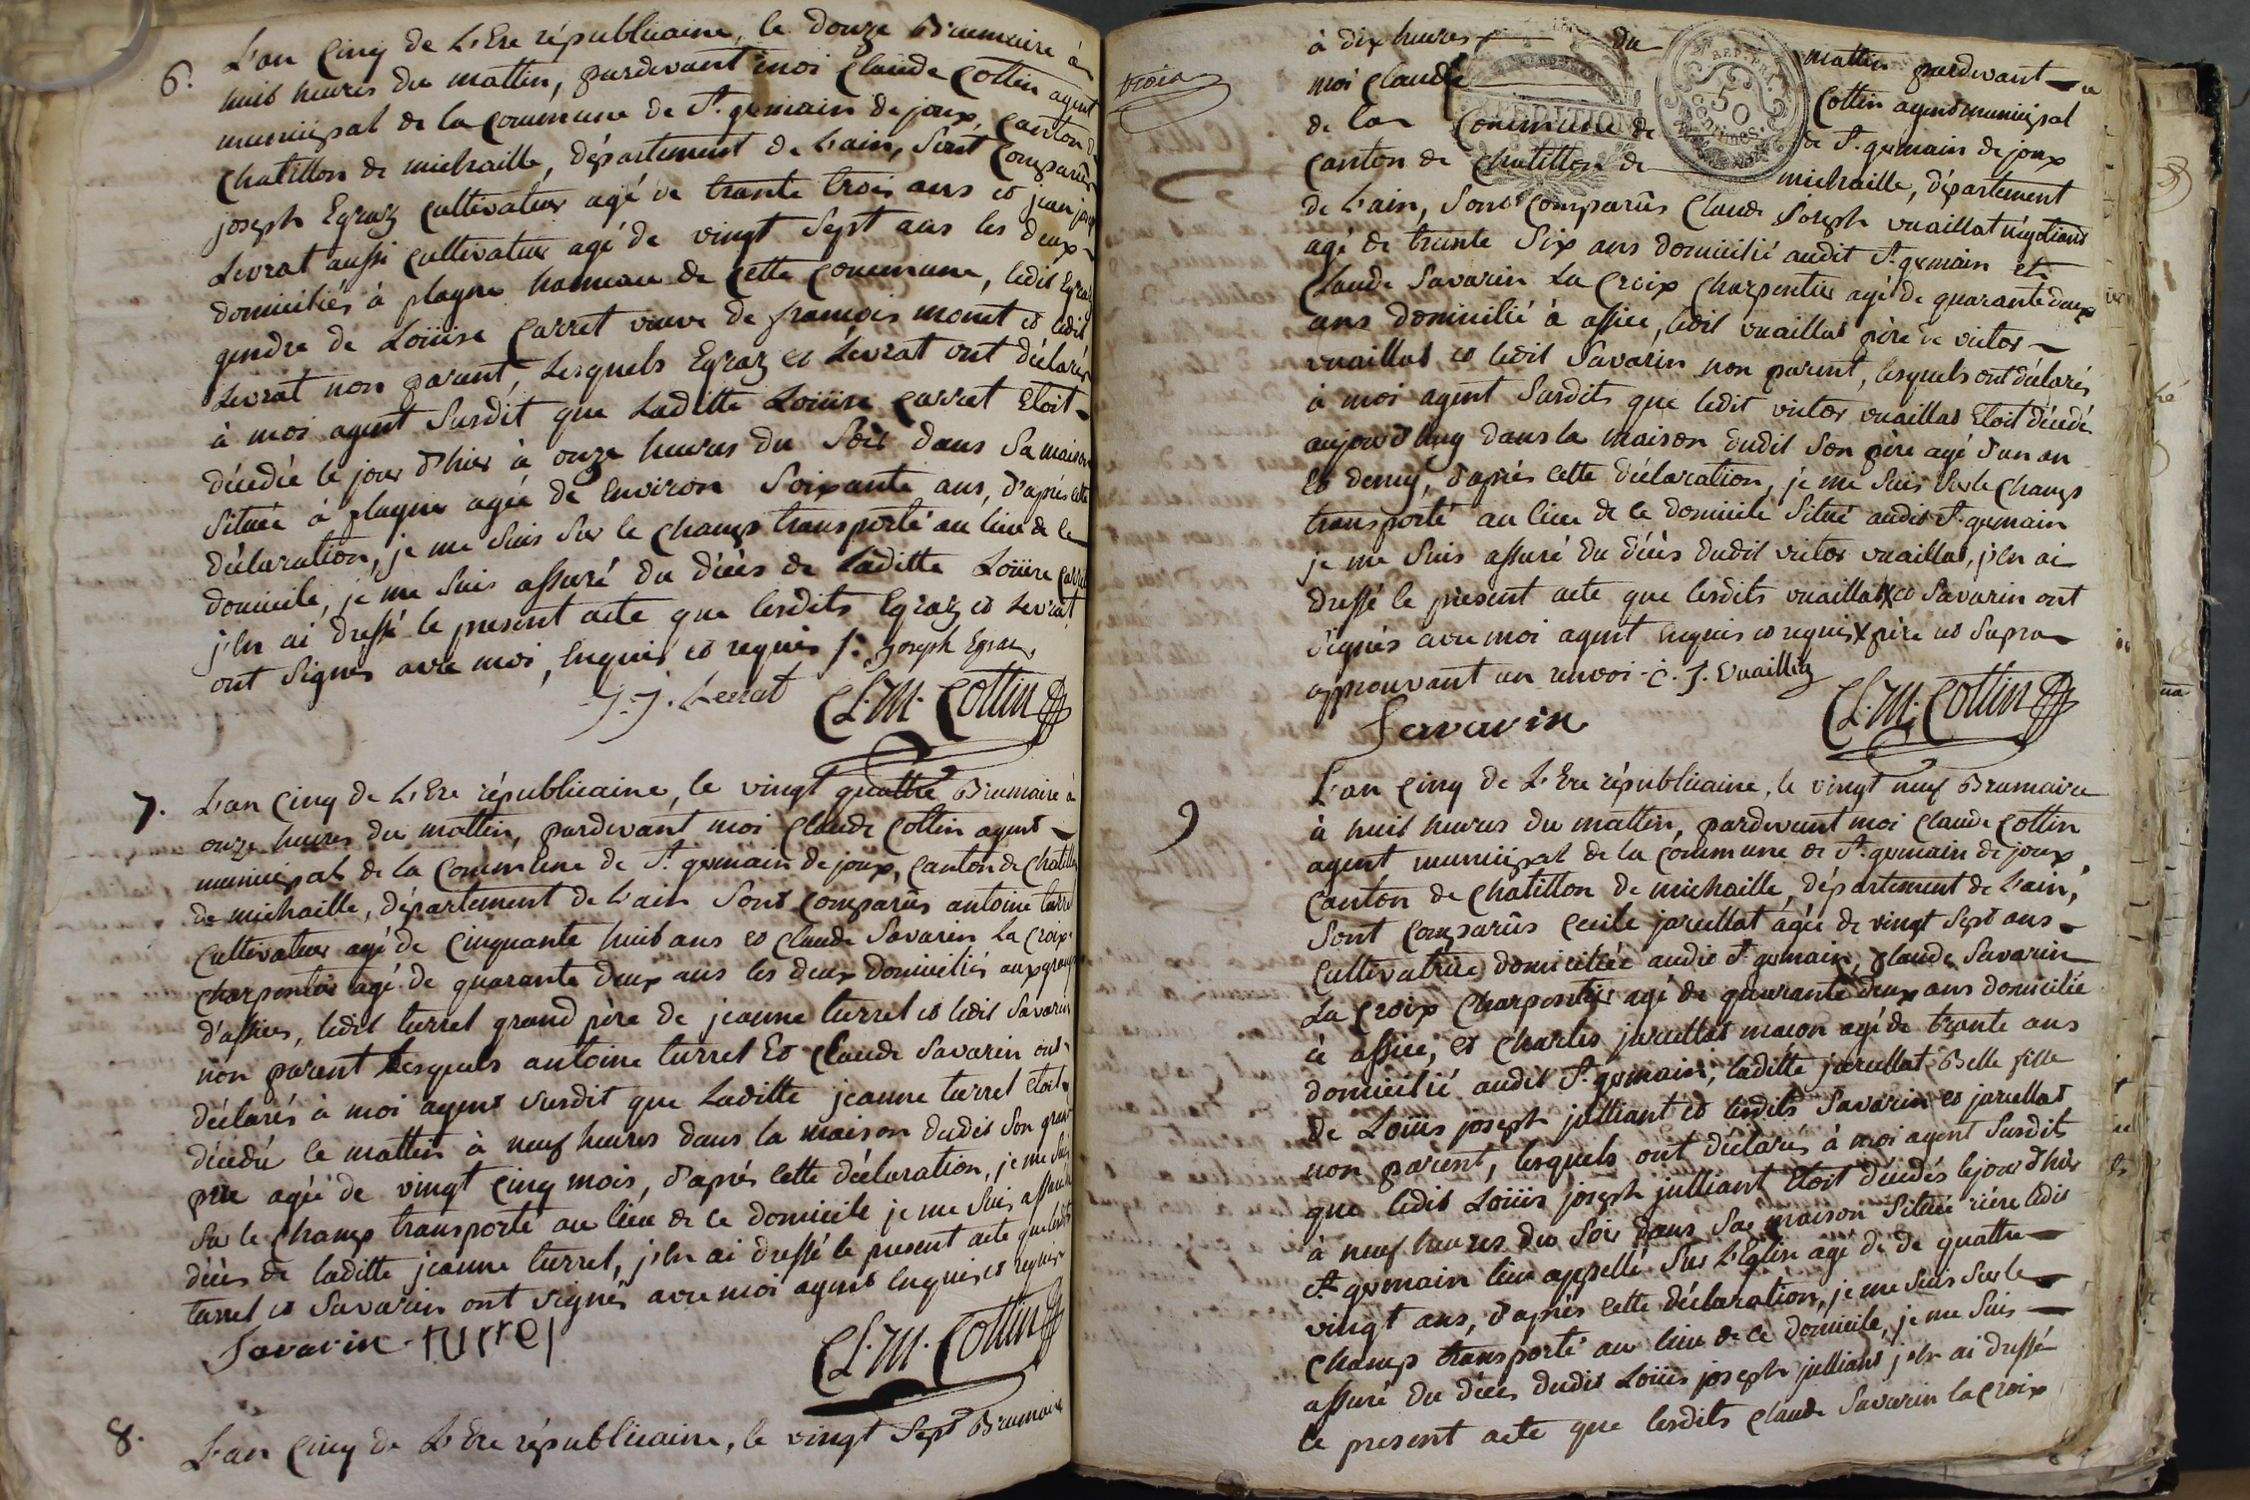 6.
L'an Cinq de L'Ere républicaine, le douze Brumaire à
huit heures du mattin, pardevant moi Claude Cottin agent
municipal de la Commune de St. germain de joux, Canton de
Chatillon de michaille, département de L'ain, Sont Comparûs
joseph Egraz Cultivateur agé de trante trois ans et jean joseph
Levrat aussi Cultivateur agé de vingt Sept ans les deux
domiciliés à plagne hameau de Cette Commune, ledit Egraz
gendre de Loüise Carret veuve de francois monet et ledit
Levrat non parent, Lesquels Egraz et Levrat ont déclarés
à moi agent Susdit que Laditte Loüise Carret Etoit
décedée le jour d'hier à onze heures du Soir dans Sa maison
Située à plagne agée de Environ Soixante ans, d'après cette
déclaration, je me Suis Sur le Champ transporté au lieu de ce
domicile, je me Suis assuré du décès de Laditte Loüise Carret
j'En ai dressé le present acte que lesdits Egraz et Levrat
ont Signés avec moi, Enquis et requis /: Joseph Egraz
J. J. Levrat Cl. M. Cottin
7.
L'an Cinq de L'Ere républicaine, le vingt quattre Brumaire à
onze heures du mattin, pardevant moi Claude Cottin agent
municipal de la Commune de St. germain de joux, Canton de Chatillon
de michaille, département de L'ain Sont Comparûs antoine turrel
Cultivateur agé de Cinquante huit ans et Claude Savarin La Croix
Charpentier agé de quarante deux ans les deux domiciliés aux granges
d'assies, ledit turrel grand père de jeanne turrel et ledit Savarin
non parent Lesquels antoine turrel Et Claude Savarin ont
déclarés à moi agent Susdit que Laditte jeanne turrel etoit
décedée ce mattin à neuf heures dans la maison dudit Son grand
père agée de vingt Cinq mois, d'après cette déclaration, je me Suis
Sur le Champ transporté au lieu de ce domicile je me Suis assuré du
décès de laditte jeanne turrel, j'En ai dressé le present acte que lesdits
turrel et Savarin ont Signés avec moi agent Enquis et requis
Savarin turrel Cl. M. Cottin
8.
L'an Cinq de L'Ere républicaine, le vingt Sept Brumaire
trois
à dix heures du mattin pardevant
moi Claude Cottin agent municipal
de la Commune de St. germain de joux
Canton de Chatillon de michaille, département
REP. FRA.
50
Centimes.
de L'ain, Sont Comparûs Claude Joseph vuaillat négotiant
agé de trente Six ans domicilié audit St. germain et
Claude Savarin La Croix Charpentier agé de quarante deux
ans domicilié à assiee, ledit vuaillat père de victor
vuaillat et ledit Savarin non parent, lesquels ont déclarés
à moi agent Susdits que ledit victor vuaillat Etoit décedé
aujourd'huy dans la maison dudit Son père agé d'un an
Et demy, d'après cette déclaration, je me Suis Sur le Champ
transporté au lieu de ce domicile Situé audit St. germain
je me Suis assuré du décès dudit victor vuaillat, j'En ai
dressé le présent acte que lesdits vuaillat X et Savarin ont
Signés avec moi agent Enquis et requis X père ut Supra
approuvant un renvoi - C. J. Vuaillat
Savarin Cl. M. Cottin
9
L'an Cinq de L'Ere républicaine, le vingt neuf Brumaire
à huit heures du mattin, pardevant moi Claude Cottin
agent municipal de la Commune de St. germain de joux,
Canton de Chatillon de michaille, département de L'ain,
Sont Comparûs Cecile jarcellat agée de vingt Sept ans
Cultivatrice domiciliée audit St. germain, Claude Savarin
La Croix Charpentier agé de quarante deux ans domicilié
à assiee, et Charles jarcellat macon agé de trante ans
domicilié audit St. germain, laditte jarcellat Belle fille
de Loüis joseph julliant et lesdits Savarin et jarcellat
non parent, lesquels ont déclarés à moi agent Susdits
que ledit Loüis joseph julliant Etoit décedés le jour d'hier
à neuf heures du Soir dans Sa maison Située rière ledit
St. germain lieu appellé Sur L'Eglise agé de de quattre
vingt ans, d'après cette déclaration, je me Suis Sur le
Champ transporté au lieu de ce domicile, je me Suis
assuré du décès dudit Loüis joseph julliant j'En ai dressé
le present acte que lesdits Claude Savarin la Croix